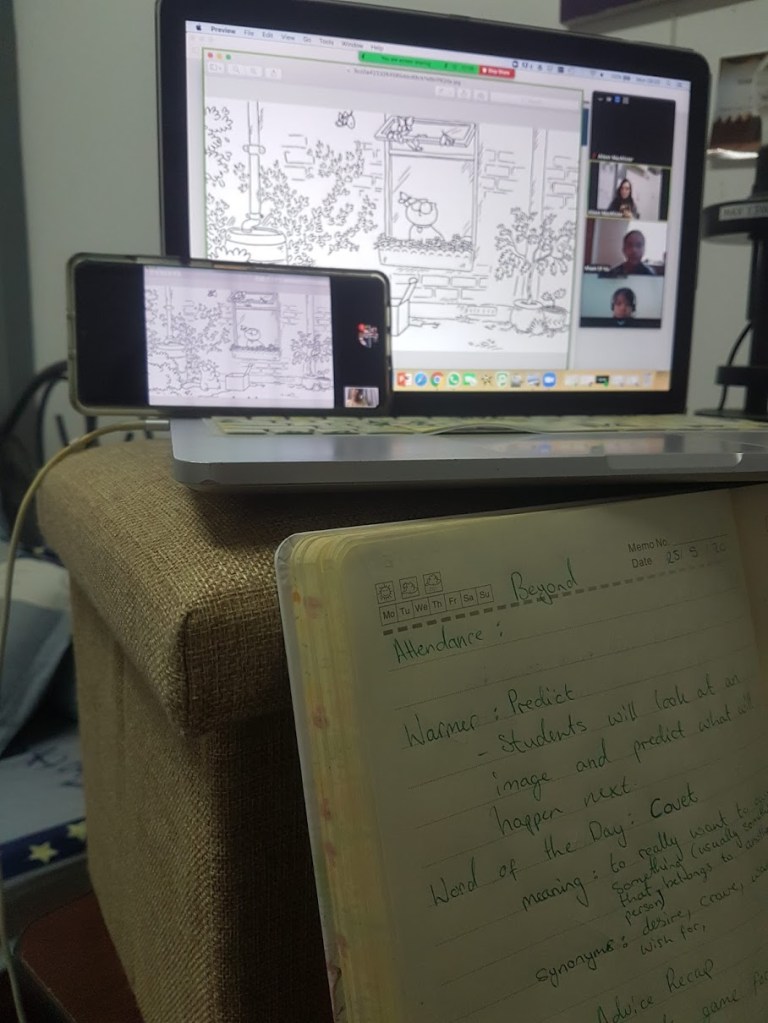 Preview File Edit View Go Tools Window Help
You are screen sharing Stop Share
Memo No.
Date 25 / 9 / 20
Mo Tu We Th Fr Sa Su
Beyond
Attendance :
Warmer : Predict
- Students will look at an
image and predict what will
happen next
Word of the Day : Covet
meaning : to really want to
something (usually
that belongs to
person)
synonyms : desire, crave,
wish for,
Advice Recap
game